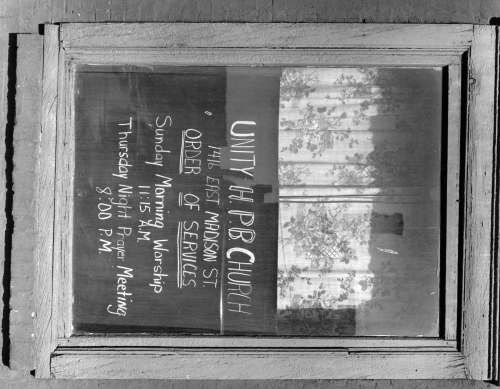 UNITY H.P.B CHURCH
1416 EAST MADISON ST.
ORDER OF SERVICES
Sunday Morning Worship
11:15 A.M.
Thursday Night Prayer Meeting
8:00 P.M.